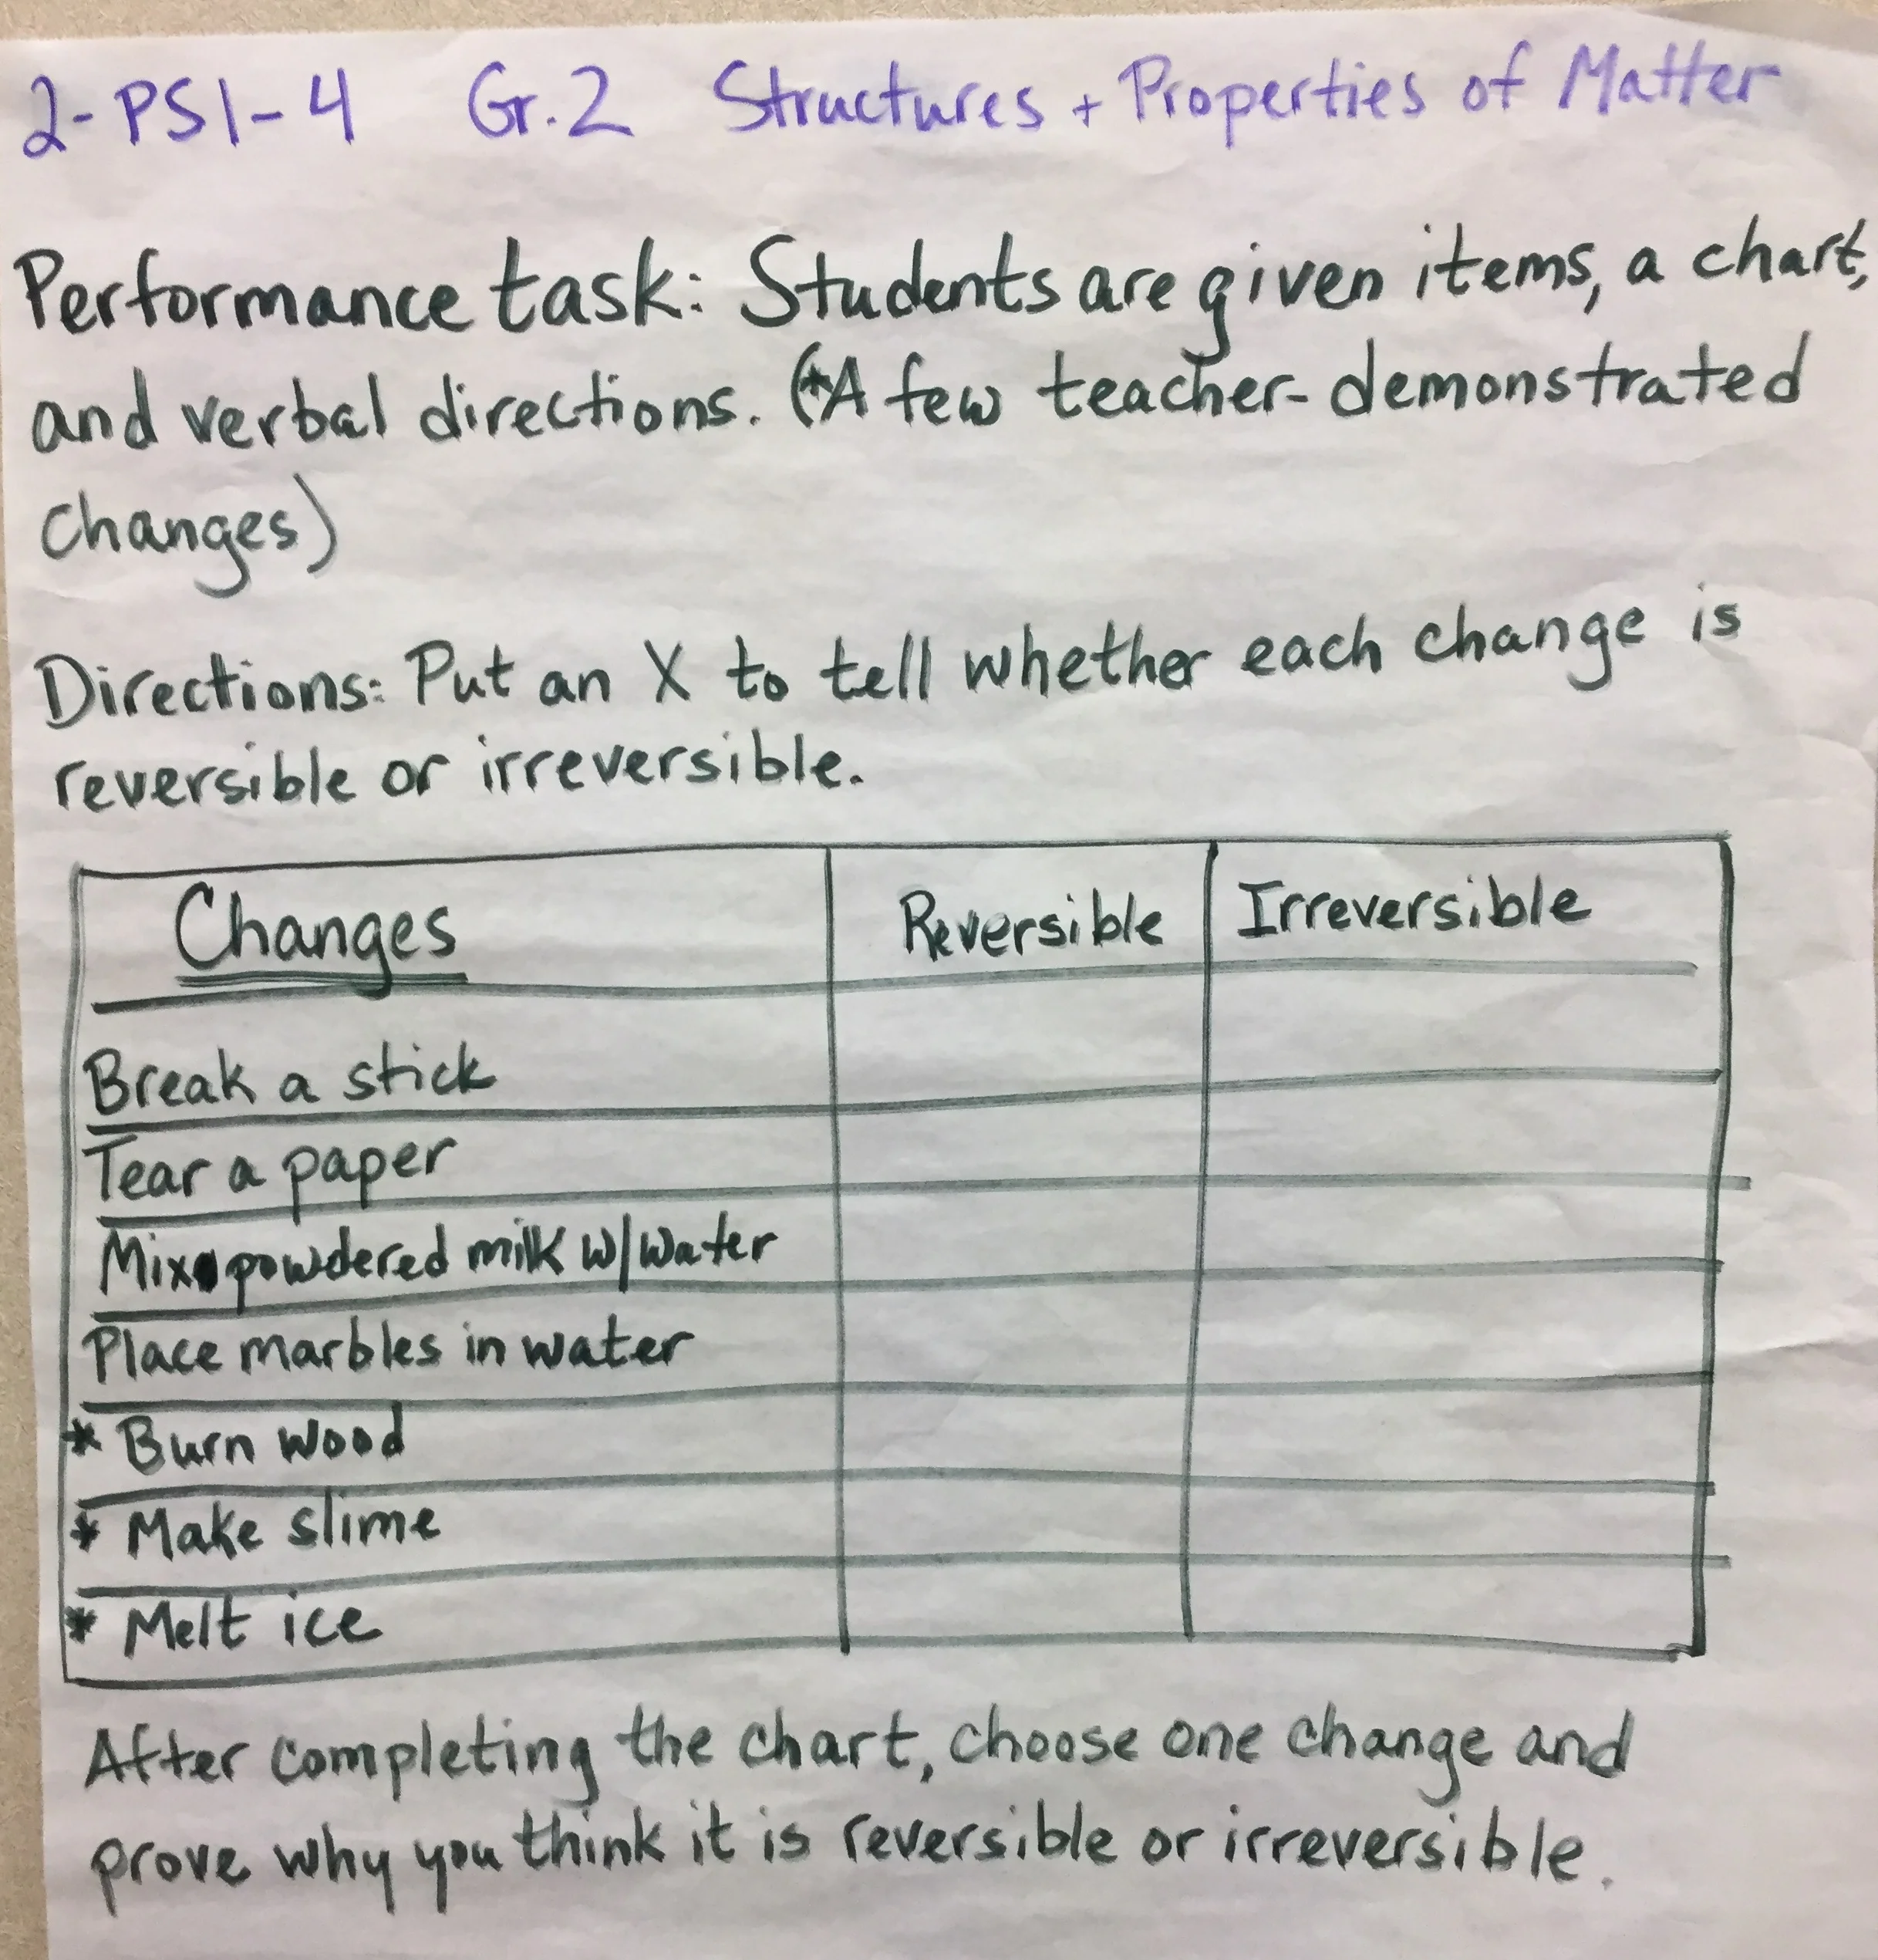 2-PS1-4 Gr.2 Structures + Properties of Matter
Performance task: Students are given items, a chart,
and verbal directions. (*A few teacher-demonstrated
changes)
Directions: Put an X to tell whether each change is
reversible or irreversible.
Changes Reversible Irreversible
Break a stick
Tear a paper
Mix powdered milk w/water
Place marbles in water
* Burn wood
* Make slime
* Melt ice
After completing the chart, choose one change and
prove why you think it is reversible or irreversible.